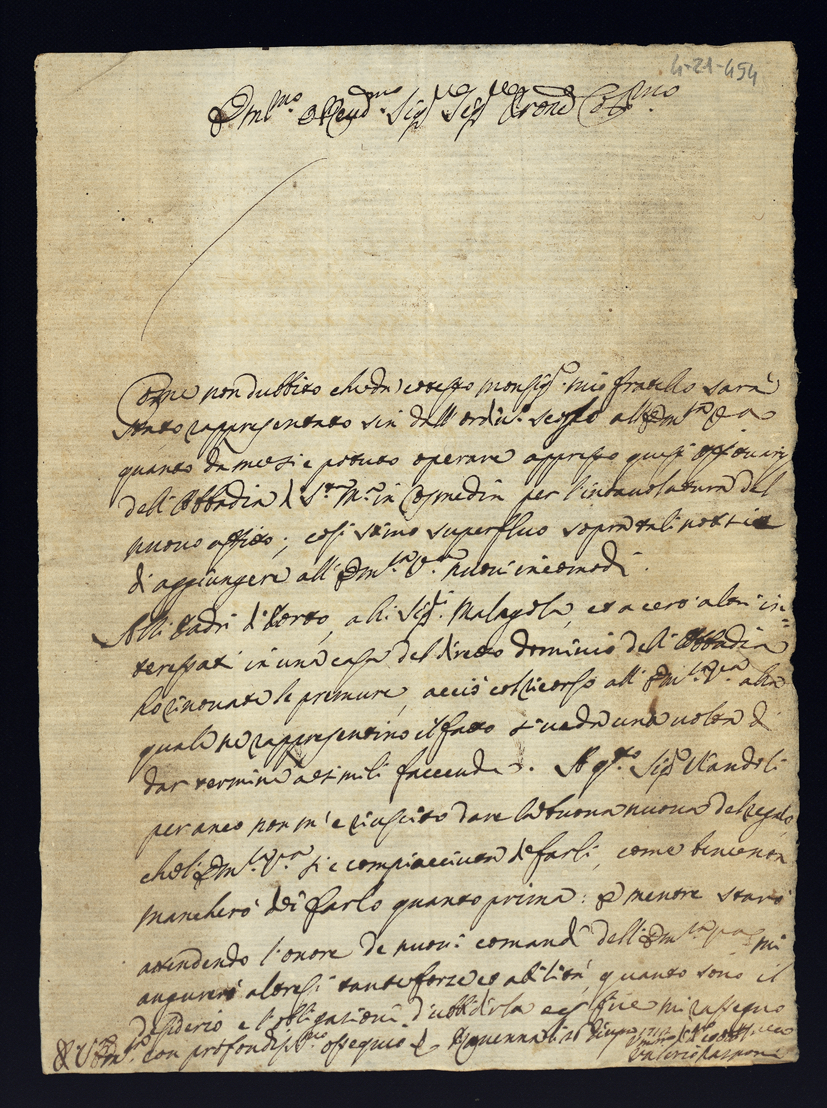 4-21-454
Em.mo e Reud.mo Sig.re Sig.re Prone Col.mo
Come non dubbito che da cotesto Monsig.re mio fratello sarà
stato rappresentato sin dall' ordin.o scorso all' Em.za V.a
quanto da me si è potuto operare appresso questi affittuarij
dell' Abbadia di S.ta M.a in Cosmedin per l'intauolatura del
nuouo affitto; così stimo superfluo sopra tali notizie
di aggiungere all' Em.za V.a nuoui incomodi.
Alli Padri di Porto, alli Sig.ri Malagola, et a certi altri in=
teressati in una casa del diretto dominio dell' Abbadia
hò rinouate le premure, acciò col ricorso all' Em.za V.a alla
quale ne rappresentino il fatto si ueda una uolta di
dar termine a simili faccende. A q.sto Sig.re Nandoli
per anco non m' è riuscito dare la buona nuoua del regalo
che l' Em.za V.a si è compiacciuta di farli, come bene non
mancherò di farlo quanto prima: e mentre starò
attendendo l' onore de nuoui comandi dell' Em.za V.a mi
augurerò altresì tante forze et abilità, quanto sono il
desiderio e l' obligazione d' ubbidirla e per fine mi rassegno
con profondiss.mo ossequio
Di V.ra Em.za Rauenna li
Valerio Rasponi